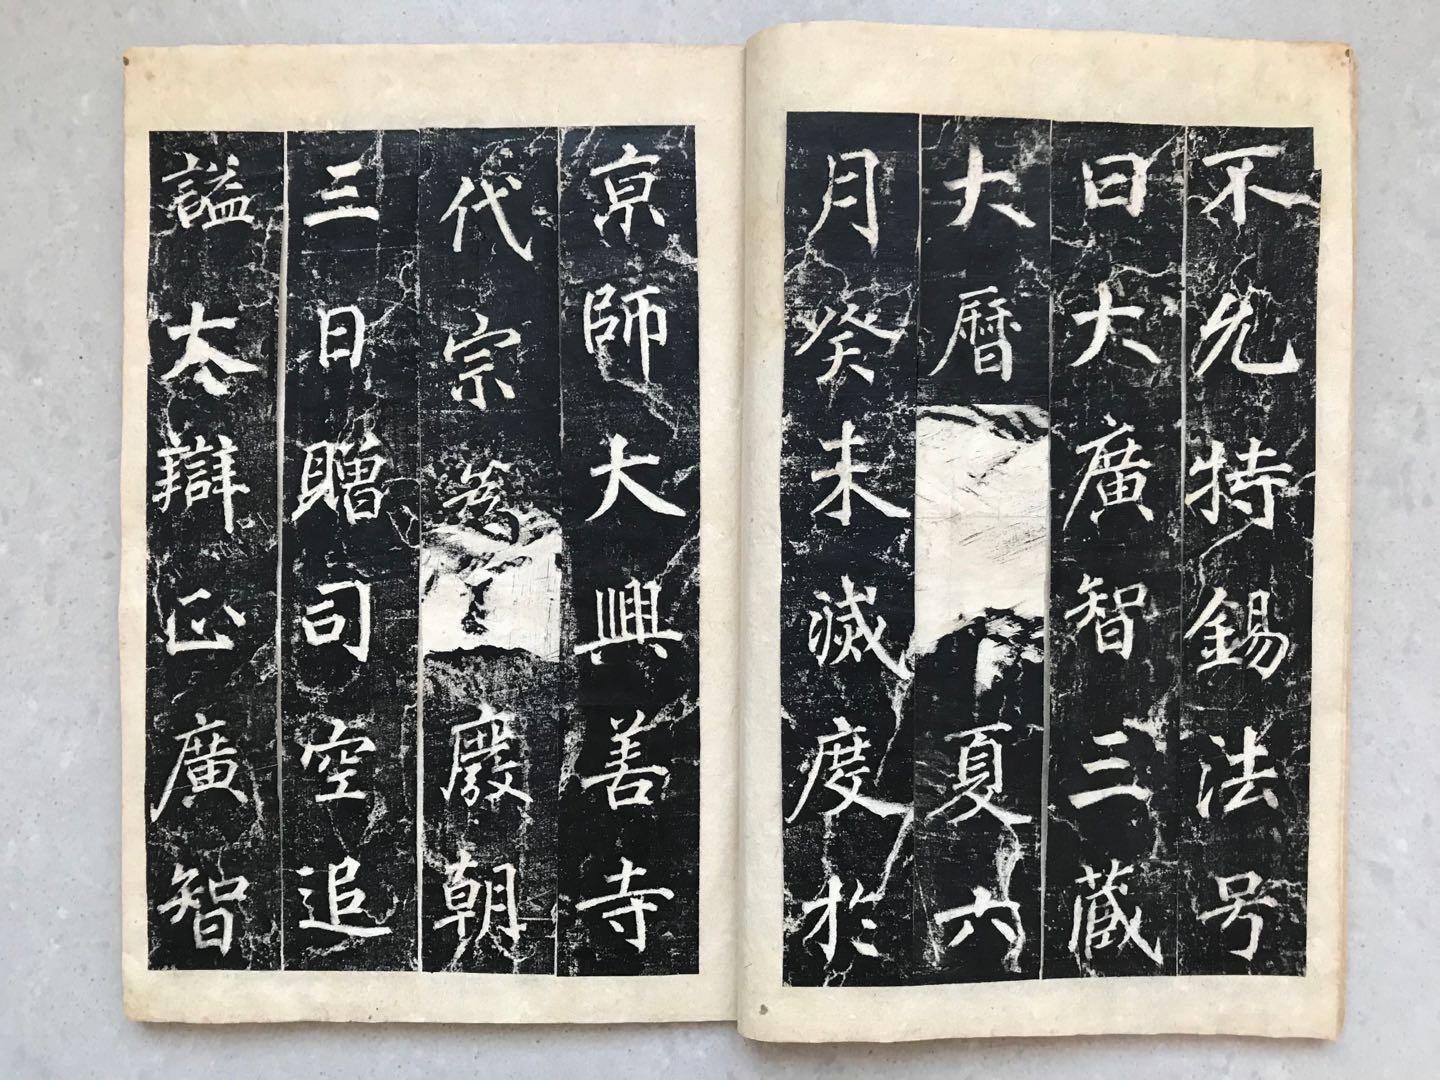 不允特錫法号
曰大廣智三藏
大曆夏六
月癸未滅度於
京師大興善寺
代宗為廢朝
三日贈司空追
謚大辯正廣智